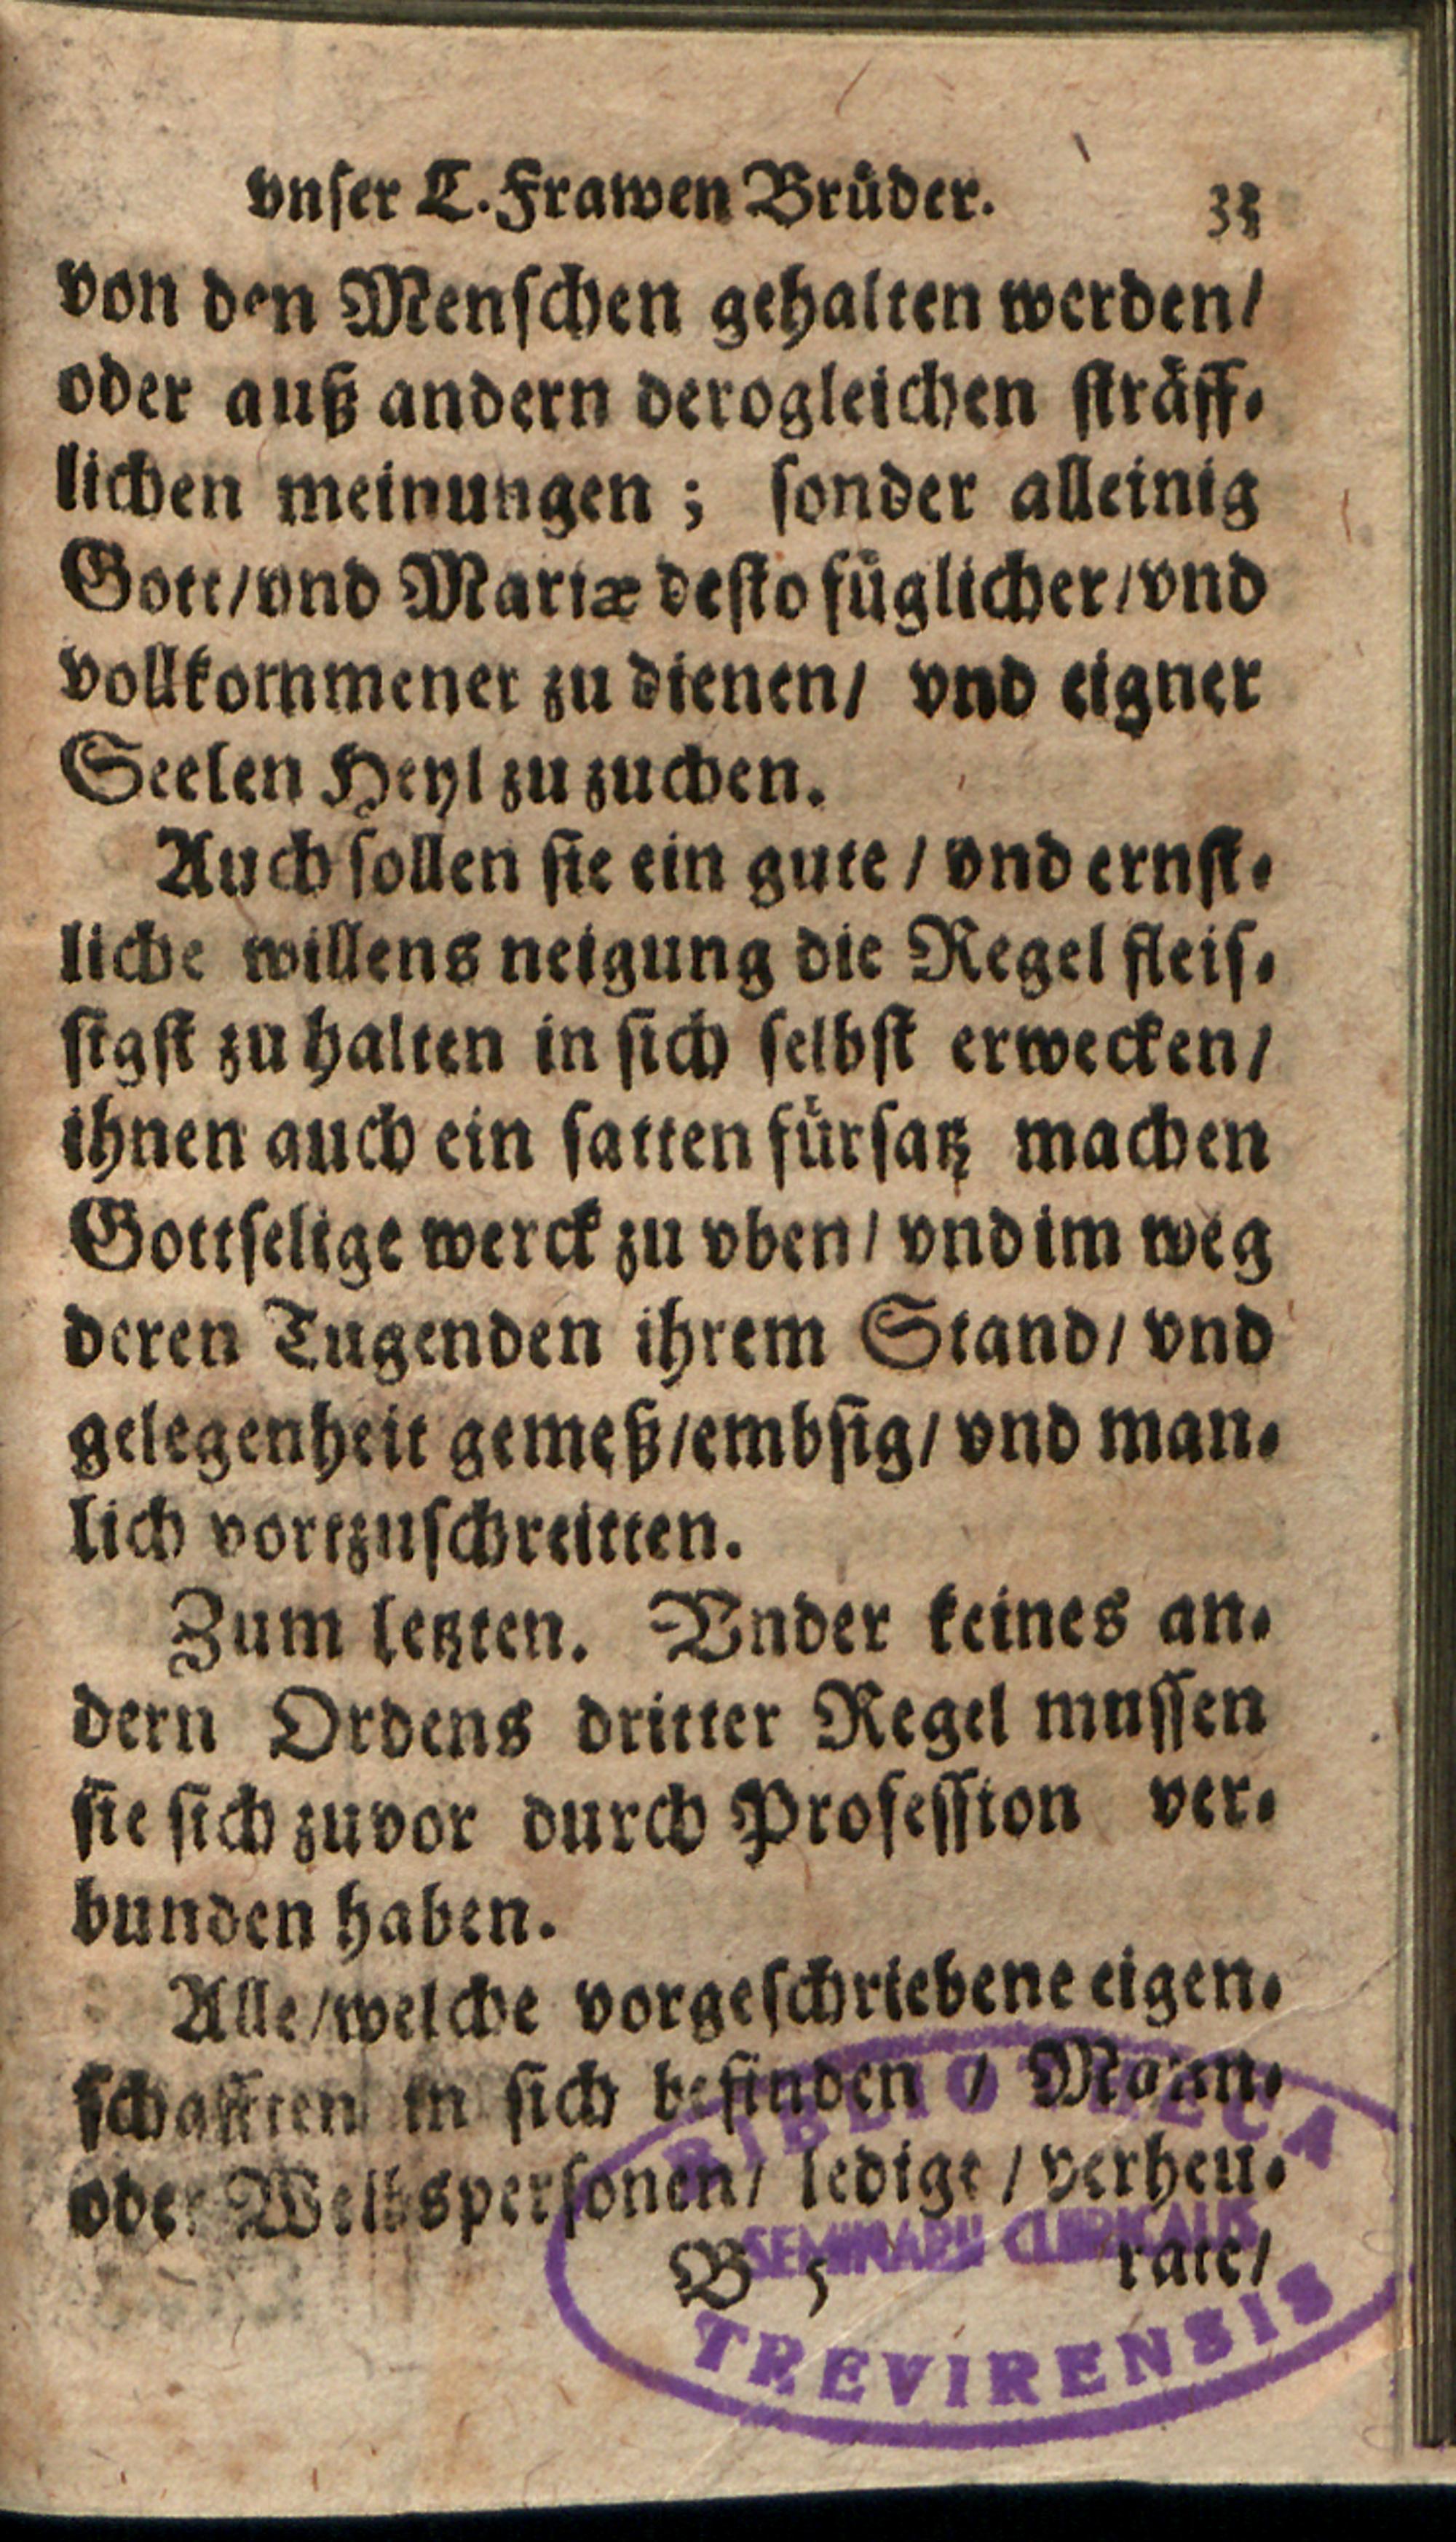 vnſer L. Frawen Brüder. 33
von den Menſchen gehalten werden/
oder auß andern derogleichen ſträff-
lichen meinungen; ſonder alleinig
Gott/vnd Mariæ deſto füglicher/vnd
vollkommener zu dienen/ vnd eigner
Seelen Heyl zu zuchen.
Auch ſollen ſie ein gute/ vnd ernſt-
liche willens neigung die Regel fleiſ-
ſigſt zu halten in ſich ſelbſt erwecken/
ihnen auch ein ſatten fürſatz machen
Gottſelige werck zu vben/ vnd im weg
deren Tugenden ihrem Stand/ vnd
gelegenheit gemeß/embſig/ vnd man-
lich vortzuſchreitten.
Zum letzten. Vnder keines an-
dern Ordens dritter Regel muſſen
ſie ſich zuvor durch Profeſſion ver-
bunden haben.
Alle/welche vorgeſchriebene eigen-
ſchafften in ſich befinden/ Mann-
oder Weibsperſonen/ ledige/ verheu-
B 5 rate/
BIBLIOTHECA
SEMINARII CLERICALIS
TREVIRENSIS